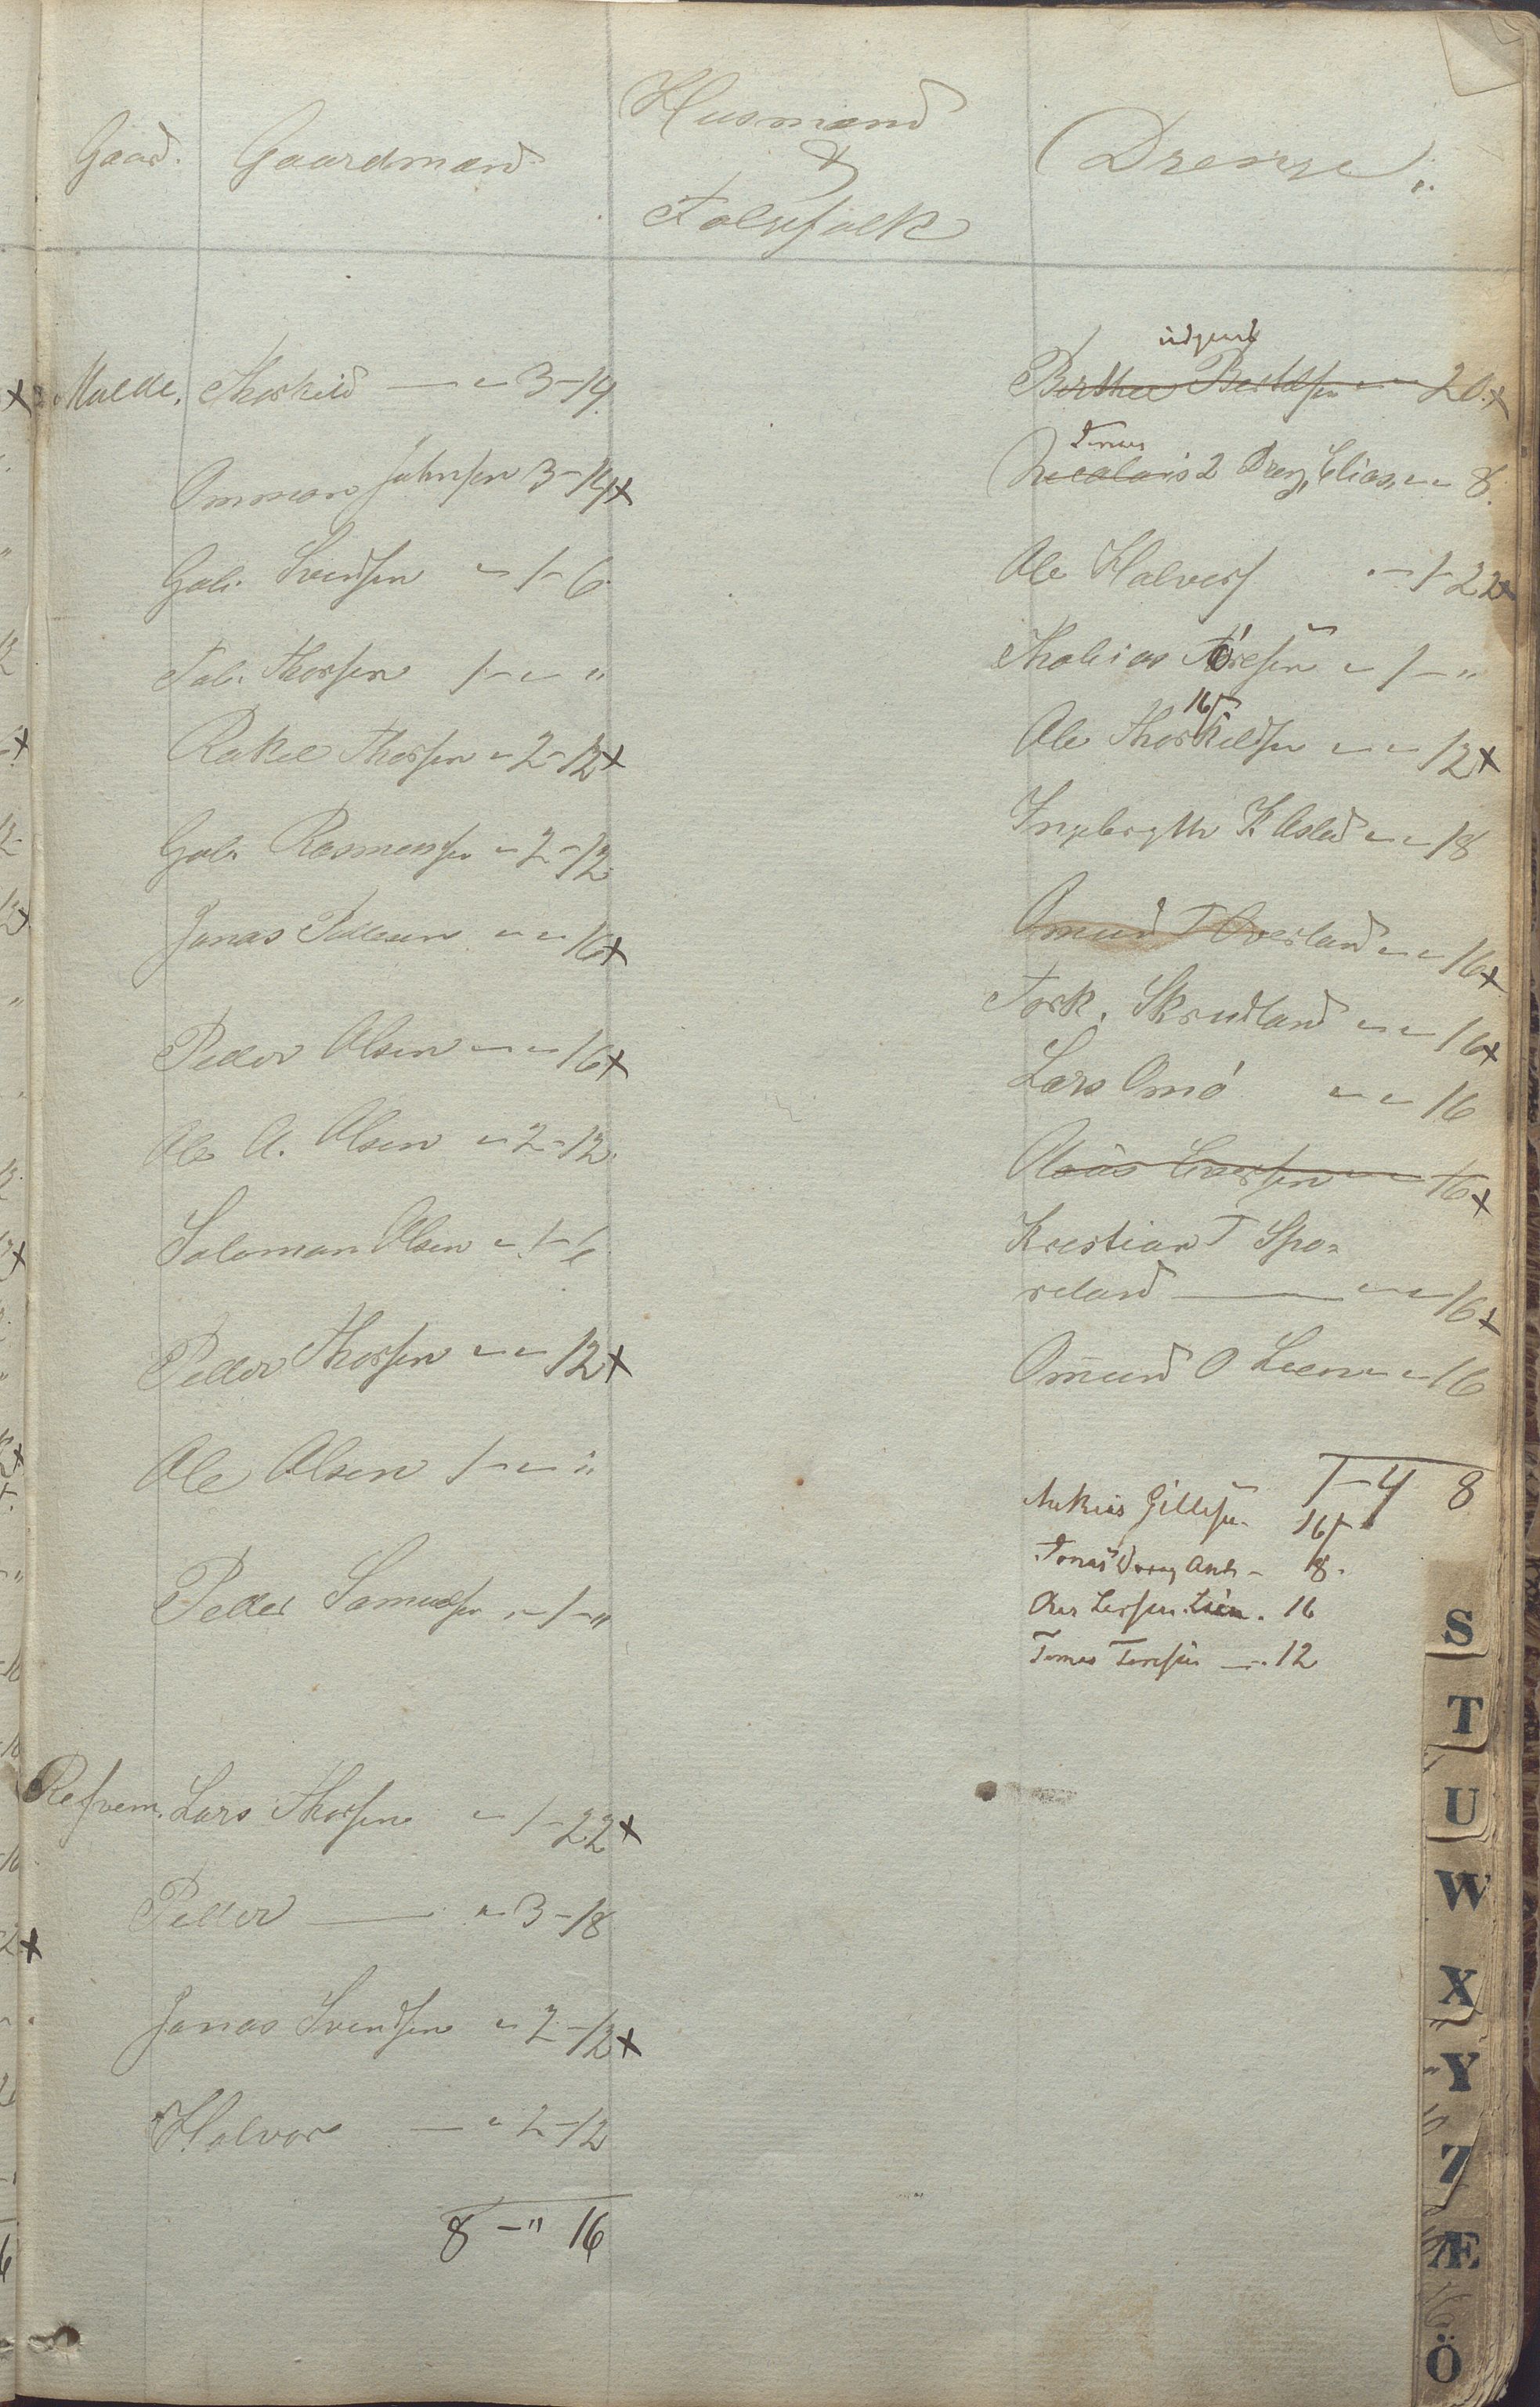 Gaard. Gaardmand Husmand & Folgefolk Drenge
Malde. Thorkild — " 3 - 14
Ommon Johnsen 3 - 14 x
Gab. Svendsen " 1 - 6
Tob. Thorsen 1 - " - "
Rakel Thorsen " 2 - 12 x
Gab. Rasmussen " 2 - 12
Jonas Pedersen " " 16 x
Peder Olsen " " 16 x
Ole A. Olsen " 2 - 12.
Soloman Olsen " 1 - 6
Peder Thorsen " " 12 x
Ole Olsen 1 - " - "
Peder Samuelsen " 1 - "
Refvem. Lars Thorsen " 1 - 22 x
Peder — " 3 - 18
Jonas Svendsen " 2 - 12 x
Halvor — " 2 - 12
8 - " 16
Berthel Bertelsen " " 20. x
Nicolais 2 Dreng, Elias " " 8.
Ole Halvors " 1 - 22 x
Thobias Toresen " 1 - "
16
Ole Thorkildsen " " 12 x
Ingebregth K Aslad " " 18
Omund T Overland " " 16 x
Tork. Skrudland " " 16 x
Lars Omö " " 16
Olaus Eversen " " 16 x
Kristian T Spo=
reland — " " 16 x
Omund O Leen " " 16
1 - 4 8
Gillesen 16
Tonas Dreng 8.
Larsen Lien. 16
Tomas Toresen — 12
S
T
U
W
X
Y
Z
Æ
Ö